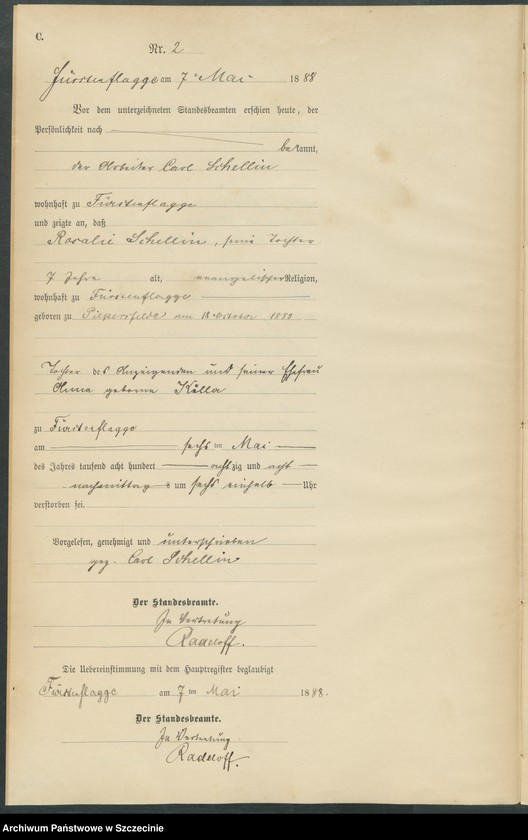 C.
Nr. 2
Fürstenflagge am 7 Mai 1888
Vor dem unterzeichneten Standesbeamten erschien heute, der
Persönlichkeit nach
bekannt,
der Arbeiter Carl Schellin
wohnhaft zu Fürstenflagge
und zeigte an, daß
Rosalie Schellin, seine Tochter
7 Jahre alt, evangelischer Religion,
wohnhaft zu Fürstenflagge
geboren zu am 18. October 1880
Tochter des Anzeigenden und seiner Ehefrau
Anna geborene
zu Fürstenflagge
am sechs ten Mai
des Jahres tausend acht hundert achtzig und acht
nachmittags um sechs einhalb Uhr
verstorben sei.
Vorgelesen, genehmigt und unterschrieben
gez. Carl Schellin
Der Standesbeamte.
In Vertretung
Radeloff.
Die Uebereinstimmung mit dem Hauptregister beglaubigt
Fürstenflagge am 7 ten Mai 1888.
Der Standesbeamte.
In Vertretung
Radeloff.
Archiwum Państwowe w Szczecinie